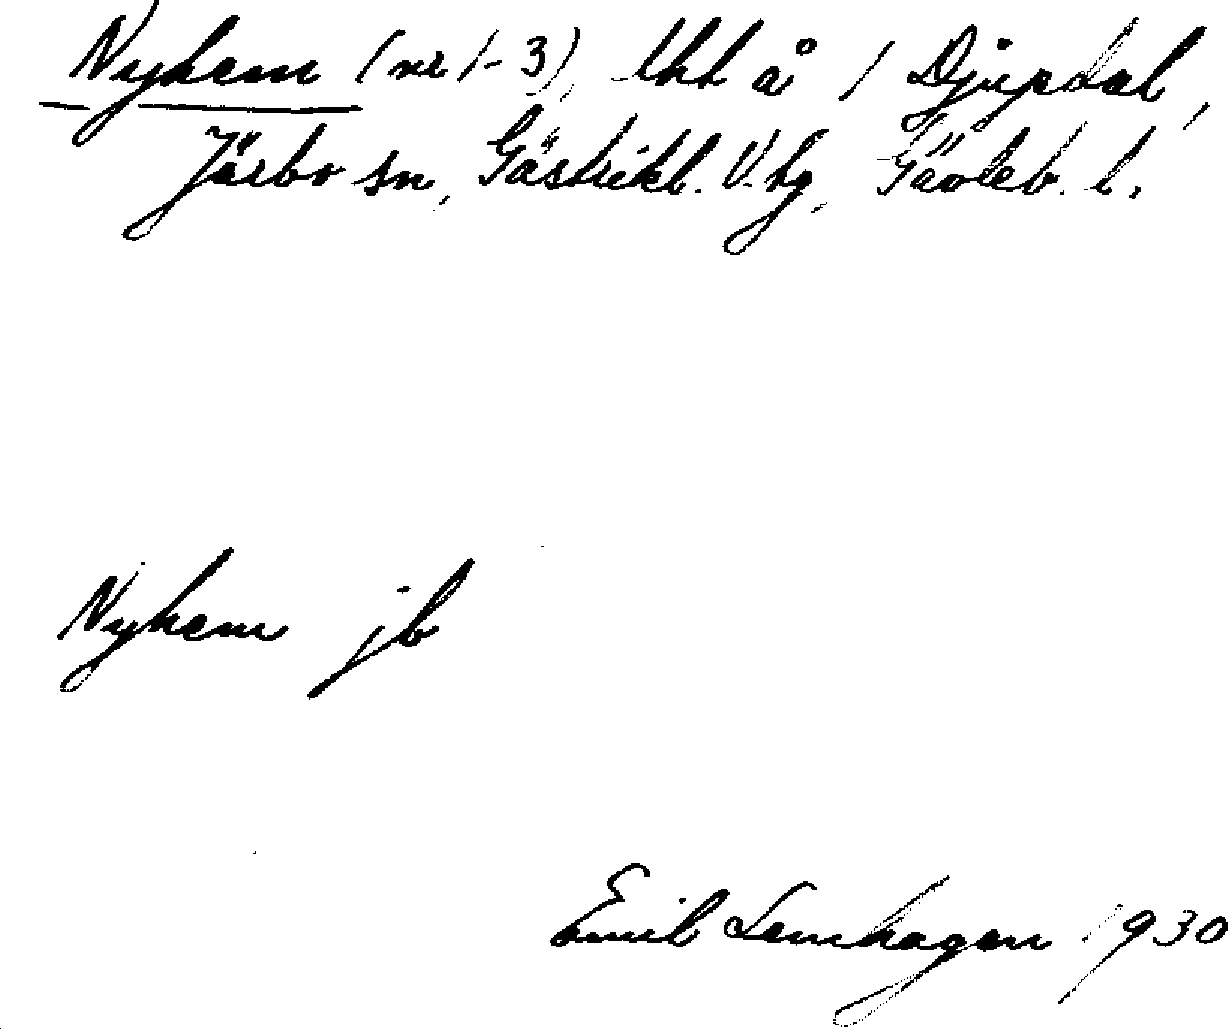 Nyhem (nr 1-3), lht å 1 Djupdal,
Järbo sn, Gästrikl. V. hg, Gävleb. l.
Nyhem jb
Emil Lemhagen 1930